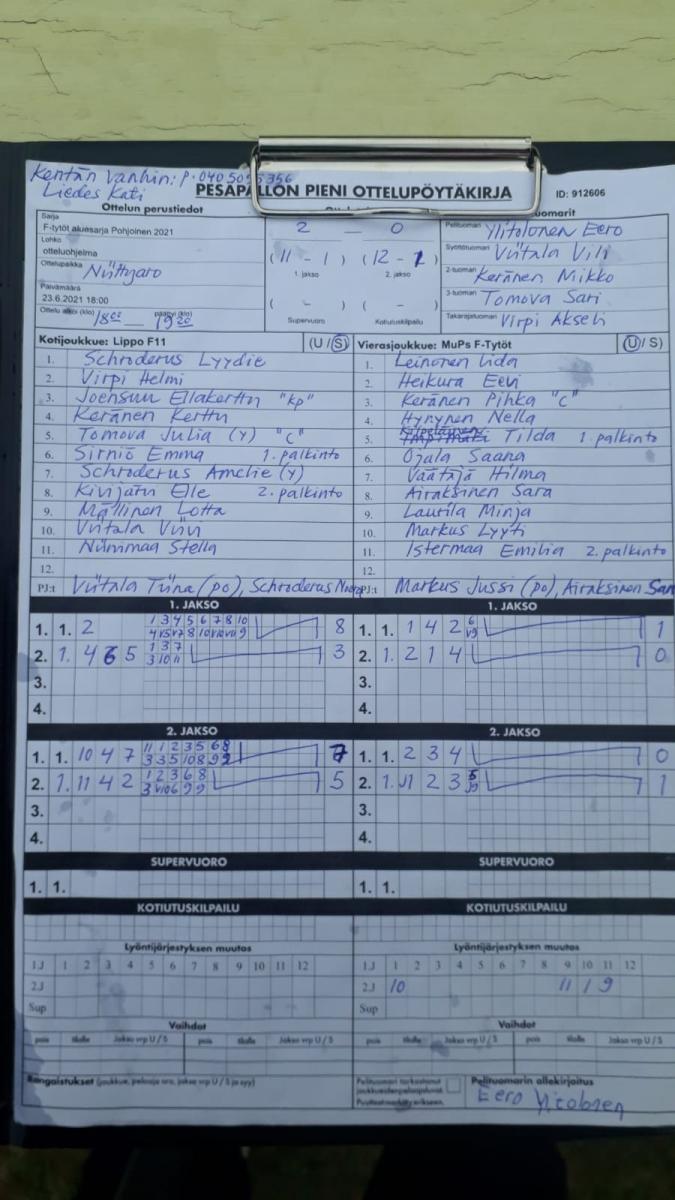 Kentän vanhin: p. 040
Liedes Kati
PESÄPALLON PIENI OTTELUPÖYTÄKIRJA
ID: 912606
Ottelun perustiedot
Sarja
F-tytöt aluesarja Pohjoinen 2021
Lohko
otteluohjelma
Ottelupaikka
Päivämäärä
23.6.2021 18:00
Ottelu alkoi (klo) 18 00 — päättyi (klo) 19 20
2 — 0
(11 - 1) (12 - 1)
1. jakso 2. jakso
( - ) ( - )
Supervuoro Kotiutuskilpailu
Pelituoman Ylitolonen Eero
Syöttötuoman Viitala Vili
2-tuoman Keränen Mikko
3-tuoman Tomova Sari
Takarajatuoman Virpi Akseli
Kotijoukkue: Lippo F11 (U / S)
1. Schroderus Lyydie
2. Virpi Helmi
3. Joensuu Ellakerttu "kp"
4. Keränen Kerttu
5. Tomova Julia (Y) "C"
6. Sirniö Emma 1. palkinto
7. Schroderus Amelie (Y)
8. Elle 2. palkinto
9. Mällinen Lotta
10. Viitala Viivi
11. Niinimaa Stella
12.
PJ:t Viitala Tiina (po), Schroderus
Vierasjoukkue: MuPs F-Tytöt (U / S)
1. Leinonen Iida
2. Heikura Eevi
3. Keränen Pihka "C"
4. Hynynen Nella
5. Tilda 1. palkinto
6. Ojala Saana
7. Väätäjä Hilma
8. Airaksinen Sara
9. Lautila Minja
10. Markus Lyyti
11. Istermaa Emilia 2. palkinto
12.
PJ:t Markus Jussi (po), Airaksinen San
1. JAKSO
1. 1. 2 1 3 4 5 6 7 8 10 8
2. 1. 4 6 5 1 3 7 3 10 11 3
3.
4.
1. JAKSO
1. 1. 1 4 2 1
2. 1. 2 1 4 0
3.
4.
2. JAKSO
1. 1. 10 4 7 11 1 2 3 5 6 8 3 3 5 10 8 9 2 7
2. 1. 11 4 2 1 2 3 6 8 5
3.
4.
2. JAKSO
1. 1. 2 3 4 0
2. 1. 2 3 1
3.
4.
SUPERVUORO
1. 1.
SUPERVUORO
1. 1.
KOTIUTUSKILPAILU
KOTIUTUSKILPAILU
Lyöntijärjestyksen muutos
1.J 1 2 3 4 5 6 7 8 9 10 11 12
2.J
Sup
Lyöntijärjestyksen muutos
1.J 1 2 3 4 5 6 7 8 9 10 11 12
2.J 10 11 1 9
Sup
Vaihdot
pois tilalle Jakso vrp U / S pois tilalle Jakso vrp U / S
Vaihdot
pois tilalle Jakso vrp U / S pois tilalle Jakso vrp U / S
Rangaistukset (joukkue, pelaaja nro, jakso vrp U / S ja syy)
Pelituomari tarkastanut
joukkueiden pelaajaluvat.
Puutteet merkitty erikseen.
Pelituomarin allekirjoitus
Eero